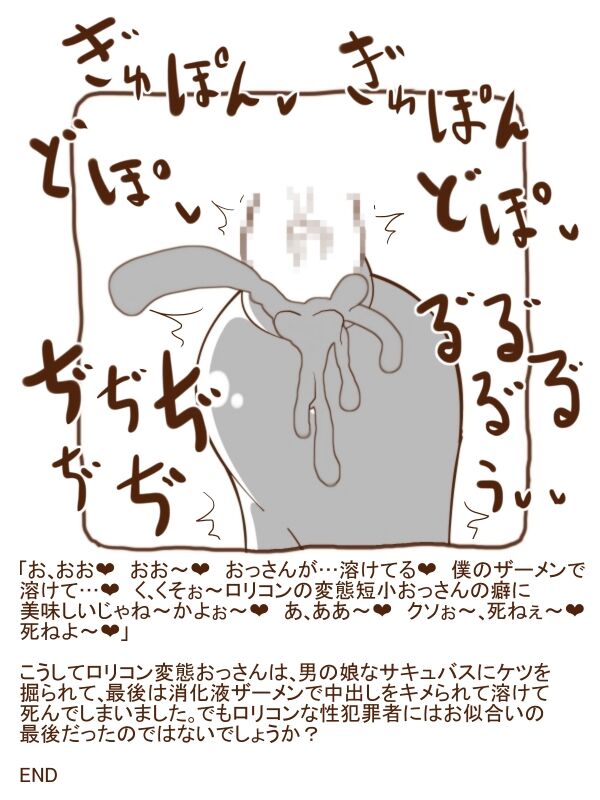 ぎゅぽん
ぎゅぽん
どぽ
どぽ
ぢぢぢ
ぢぢ
るるるる
ぅ
「お、おお❤ おお～❤ おっさんが…溶けてる❤ 僕のザーメンで
溶けて…❤ く、くそぉ～ロリコンの変態短小おっさんの癖に
美味しいじゃね～かよぉ～❤ あ、ああ～❤ クソぉ～、死ねぇ～❤
死ねよ～❤」
こうしてロリコン変態おっさんは、男の娘なサキュバスにケツを
掘られて、最後は消化液ザーメンで中出しをキメられて溶けて
死んでしまいました。でもロリコンな性犯罪者にはお似合いの
最後だったのではないでしょうか？
END